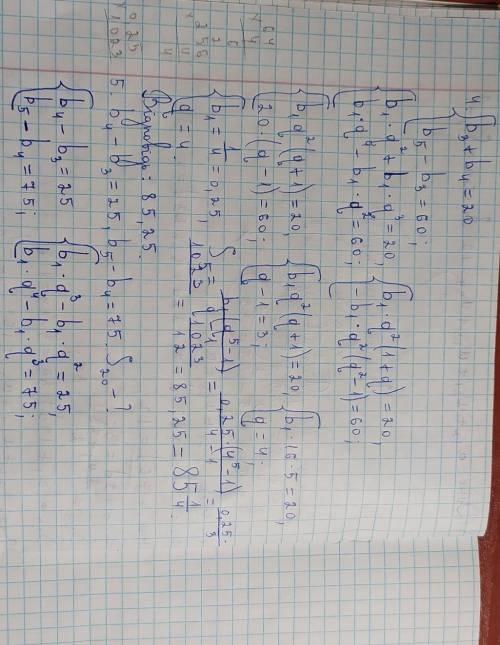 4. { b₃ + b₄ = 20,
b₅ − b₃ = 60;
{ b₁·q² + b₁·q³ = 20, { b₁·q²(1+q) = 20,
b₁·q⁴ − b₁·q² = 60; − b₁·q²(q²−1) = 60;
{ b₁q²(q+1) = 20, { b₁q²(q+1) = 20, { b₁·16·5 = 20,
20·(q−1) = 60; q−1 = 3; q = 4;
{ b₁ = 1/4 = 0,25, S₅ = b₁(q⁵−1)/(q−1) = 0,25·(4⁵−1)/(4−1) = 0,25·
q = 4. 1023/3
= 1023/12 = 85,25 = 85 1/4.
Відповідь: 85,25.
5. b₄ − b₃ = 25, b₅ − b₄ = 75. S₂₀ − ?
{ b₄ − b₃ = 25 { b₁·q³ − b₁·q² = 25,
b₅ − b₄ = 75; b₁·q⁴ − b₁·q³ = 75;
64
4
256
4
0,25
1023